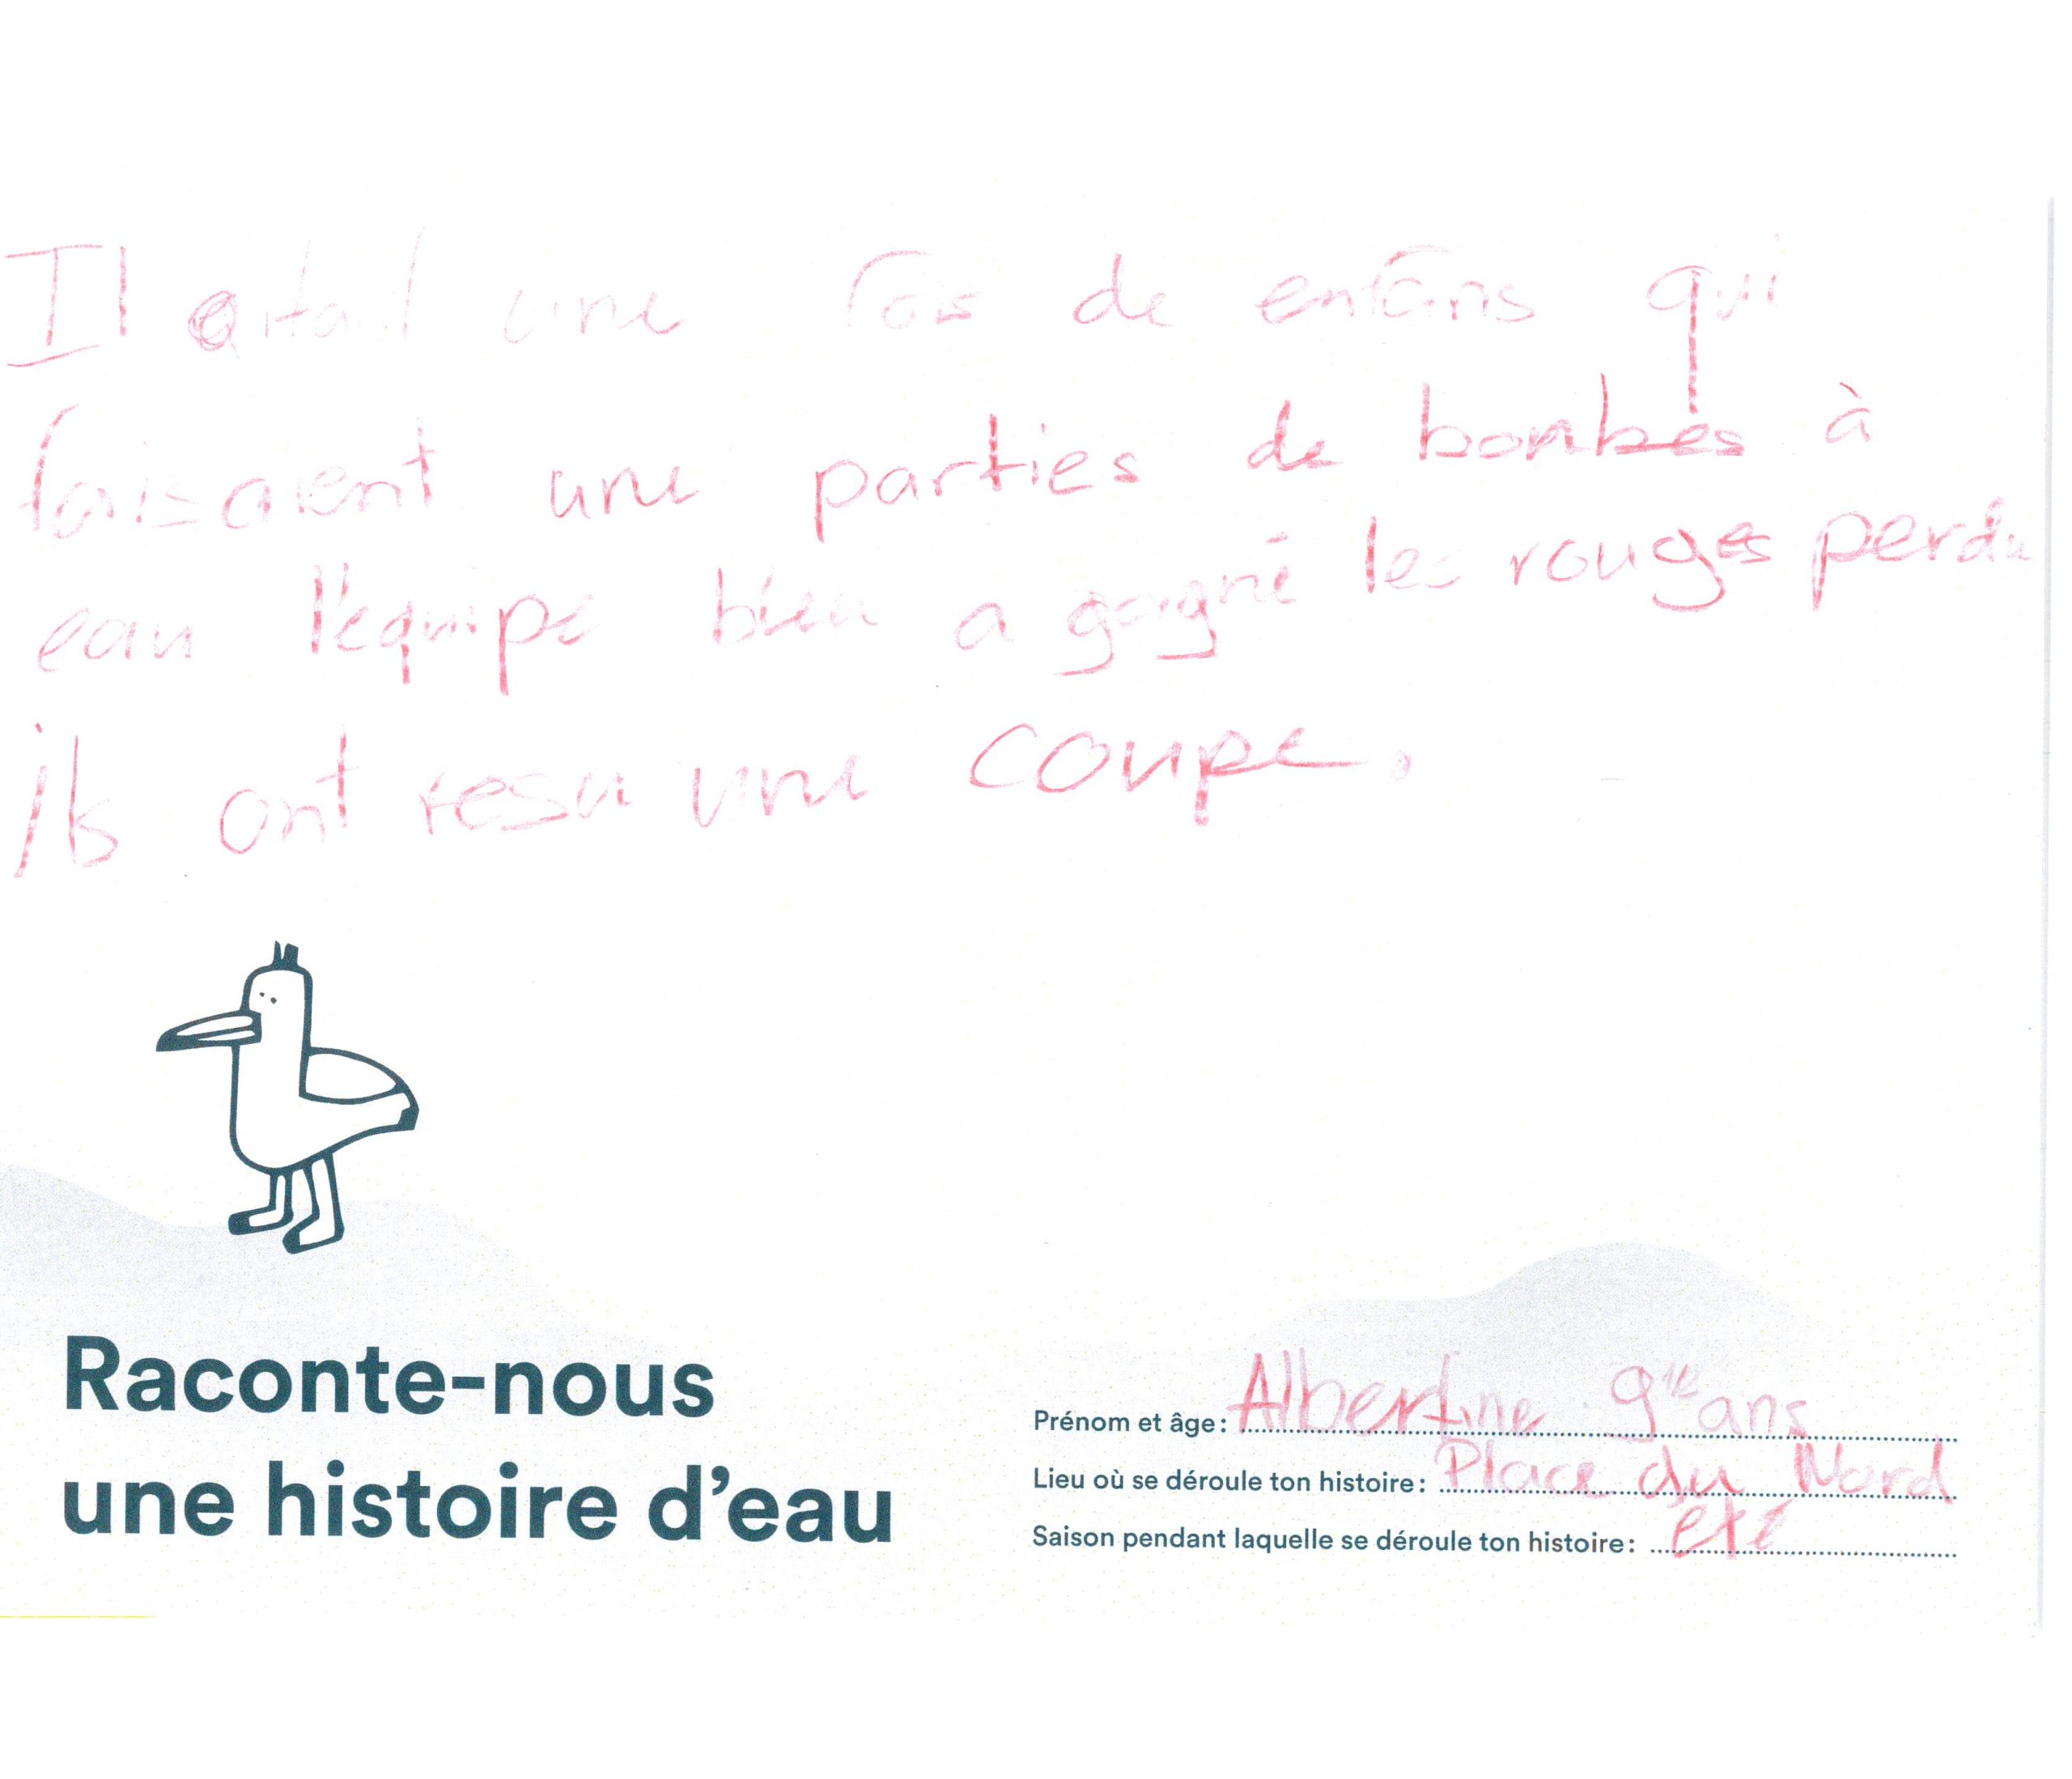 Il était une fois de enfans qui
faisaient une parties de bombes à
eau l'equipe bleu a gagné les rouges perdu
ils ont resu une coupe.
Raconte-nous
une histoire d'eau
Prénom et âge: Albertine 9 ans
Lieu où se déroule ton histoire: Place du Nord
Saison pendant laquelle se déroule ton histoire: été